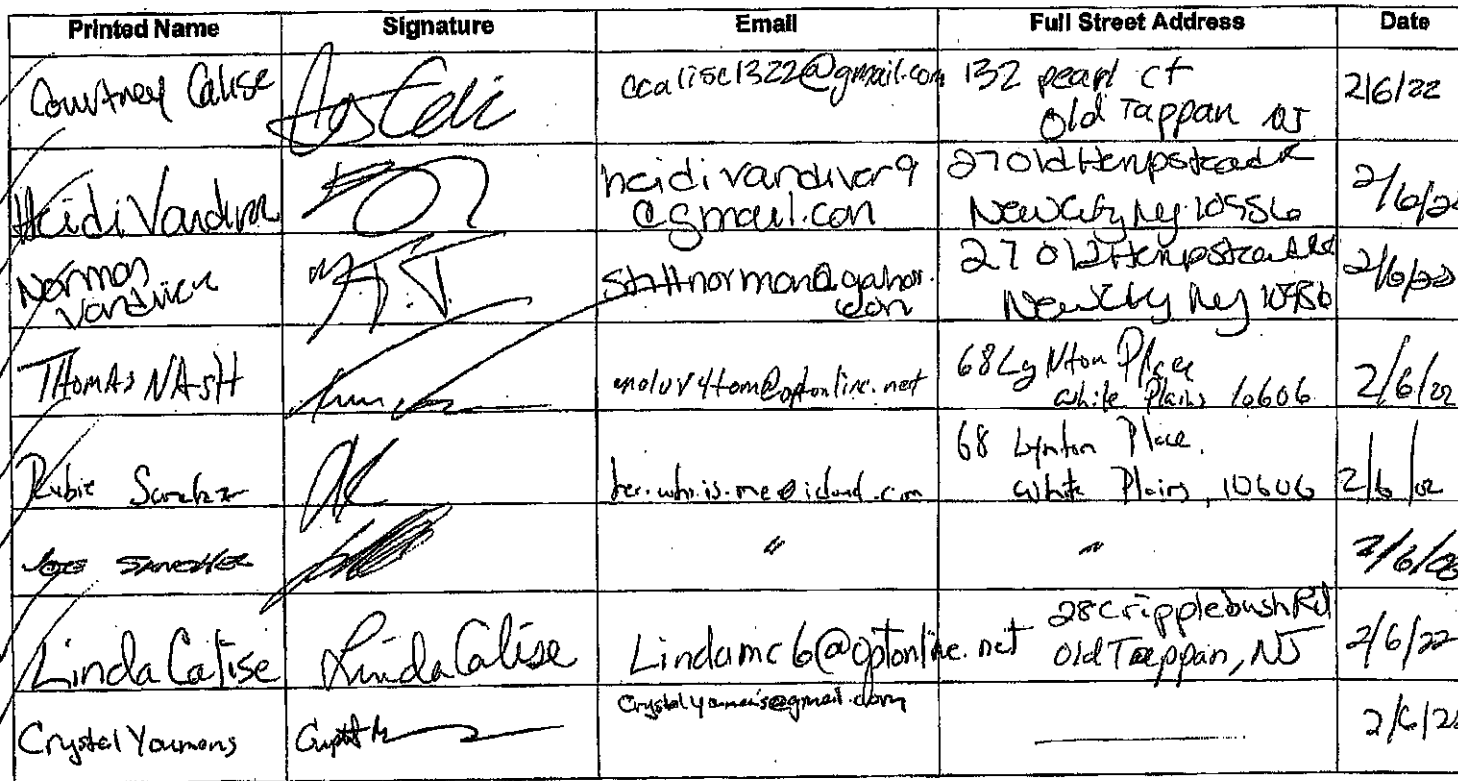 Printed Name Signature Email Full Street Address Date
Courtney Calise ccalise1322@gmail.com 132 pearl ct
Old Tappan NJ 2/6/22
Heidi Vandiver heidivandiver9
@gmail.com 27 Old Hempstead R
New City Ny 10956 2/6/22
Norman
Vandiver 27 Old Hempstead Rd
New City Ny 10956 2/6/22
THOMAS NASH @optonline.net 68 Lynton Place
White Plains 10606 2/6/22
Rubie Sanchez her.who.is.me@icloud.com 68 Lynton Place.
White Plains, 10606 2/6/22
JOE SANCHEZ " " 2/6/22
Linda Calise Linda Calise Lindamc6@optonline.net 28 Cripplebush Rd
Old Tappan, NJ 2/6/22
Crystal Youmans 2/6/22